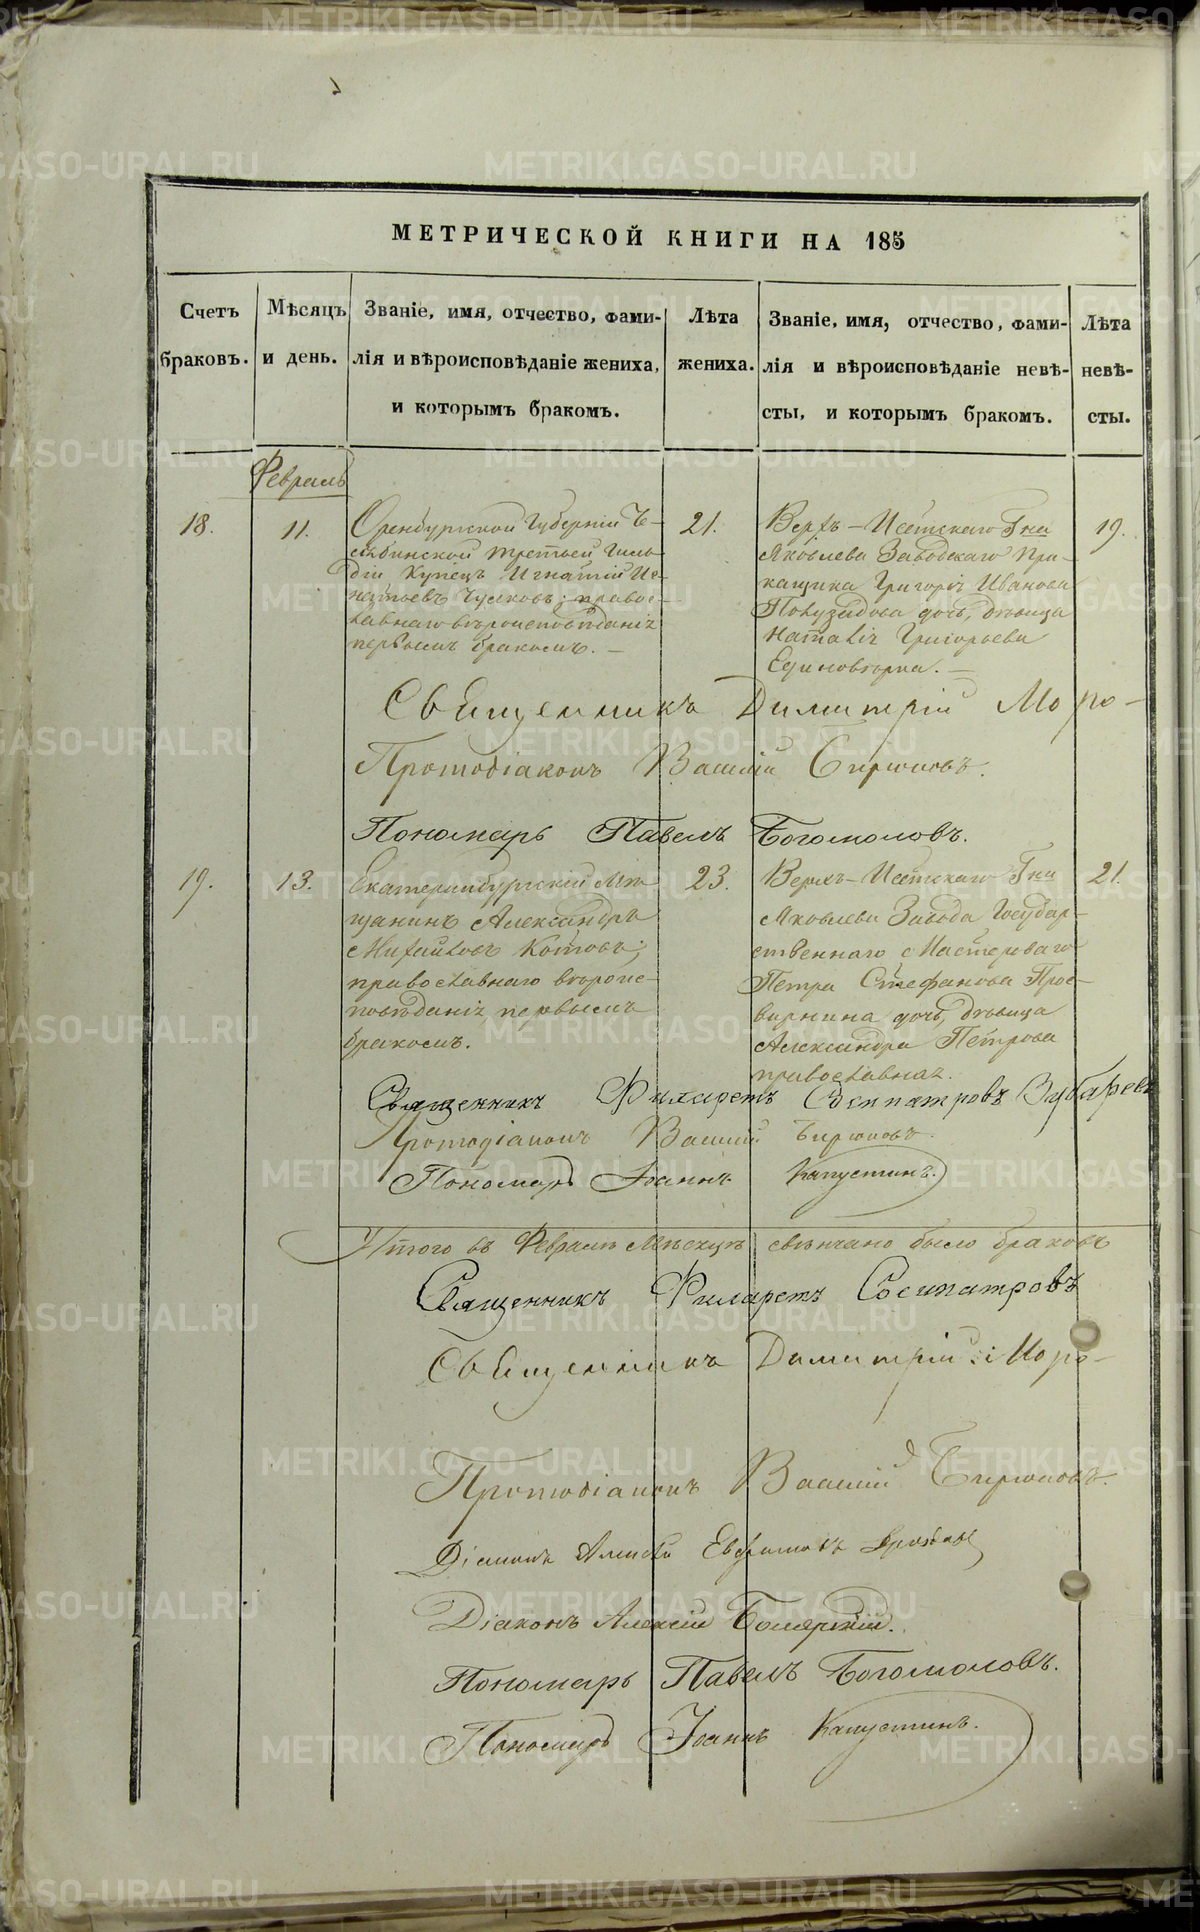 МЕТРИЧЕСКОЙ КНИГИ НА 185
Счетъ браковъ.
Мѣсяцъ и день.
Званіе, имя, отчество, фами-
лія и вѣроисповѣданіе жениха,
и которымъ бракомъ.
Лѣта жениха.
Званіе, имя, отчество, фами-
лія и вѣроисповѣданіе невѣ-
сты, и которымъ бракомъ.
Лѣта невѣ-
сты.
Февраль
18.
11.
Оренбургской Губерніи Че-
лябинской третьей Гиль
діи Купецъ Игнатій Иг-
натьевъ; правос-
лавнаго вѣроисповѣданія
первымъ бракомъ.
21.
Верхъ-Исетскаго Гна
Яковлева Заводскаго При-
кащика Григорія Иванова
дочь, дѣвица
Наталія Григорьева
Единовѣрка.
19.
Священникъ Димитрій
Протодіаконъ Василій Бирюковъ.
Пономарь Павелъ Богомоловъ.
19.
13.
Екатеринбургскій Мѣ
щанинъ Александръ
Михайловъ Котовъ;
православнаго вѣроис-
повѣданія, первымъ
бракомъ.
23.
Верхъ-Исетскаго Гна
Яковлева Завода Государ-
ственнаго Мастероваго
Петра Стефанова Прос-
вирнина дочь, дѣвица
Александра Петрова
православная.
21.
Священникъ Филаретъ Сосипатровъ Зубаревъ
Протодіаконъ Василій Бирюковъ.
Пономарь Іоаннъ Капустинъ.
Итого въ Февралѣ Мѣсяцѣ свѣнчано было браковъ
Священникъ Филаретъ Сосипатровъ
Священникъ Димитрій
Протодіаконъ Василій Бирюковъ.
Діаконъ
Діаконъ Алексій Болярскій.
Пономарь Павелъ Богомоловъ.
Пономарь Іоаннъ Капустинъ.
METRIKI.GASO-URAL.RU